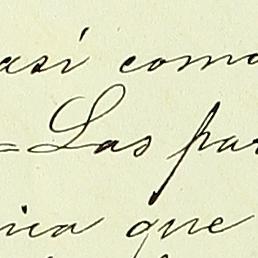 así como
= Las par
nica que